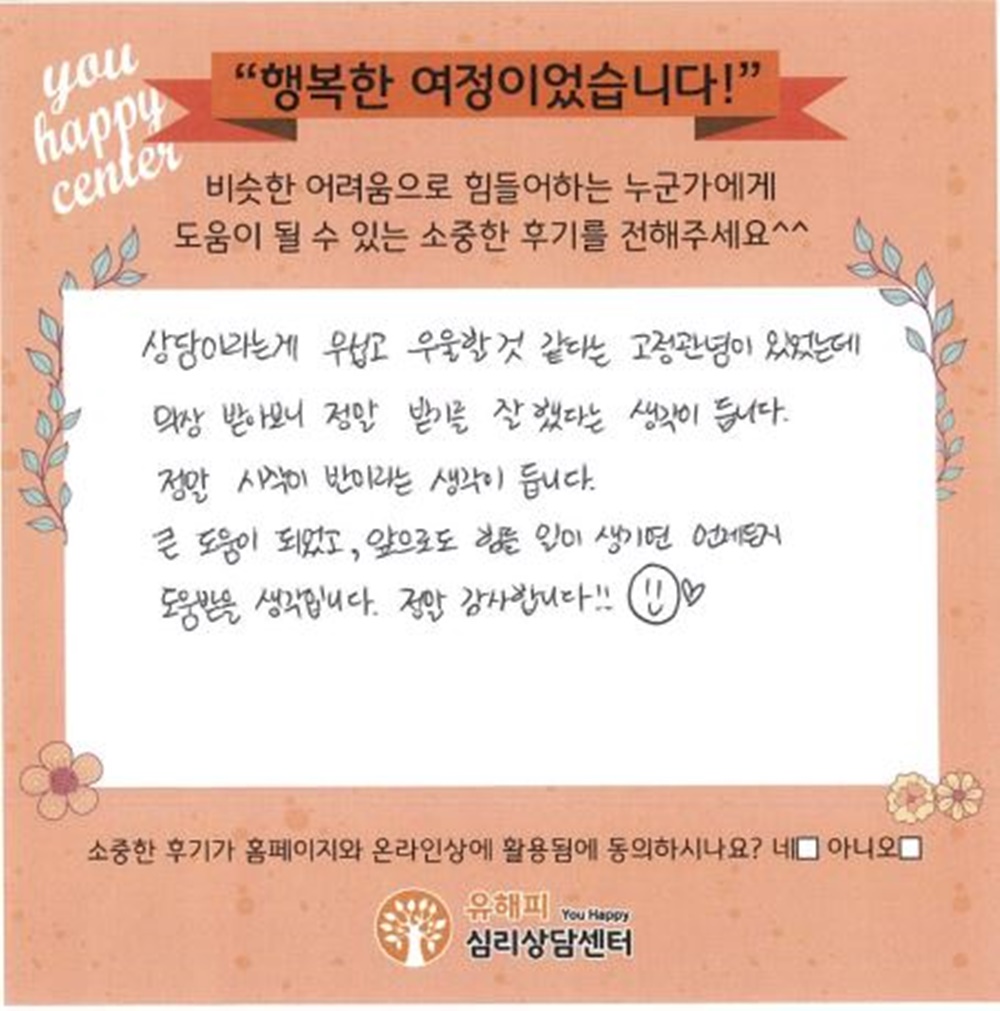 you
happy
center
“행복한 여정이었습니다!”
비슷한 어려움으로 힘들어하는 누군가에게
도움이 될 수 있는 소중한 후기를 전해주세요^^
상담이라는게 무섭고 우울할것 같다는 고정관념이 있었는데
막상 받아보니 정말 받기를 잘했다는 생각이 듭니다.
정말 시작이 반이라는 생각이 듭니다.
큰 도움이 되었고, 앞으로도 힘들 일이 생기면 언제든지
도움받을 생각입니다. 정말 감사합니다!!
소중한 후기가 홈페이지와 온라인상에 활용됨에 동의하시나요? 네□ 아니오□
유해피 You Happy
심리상담센터